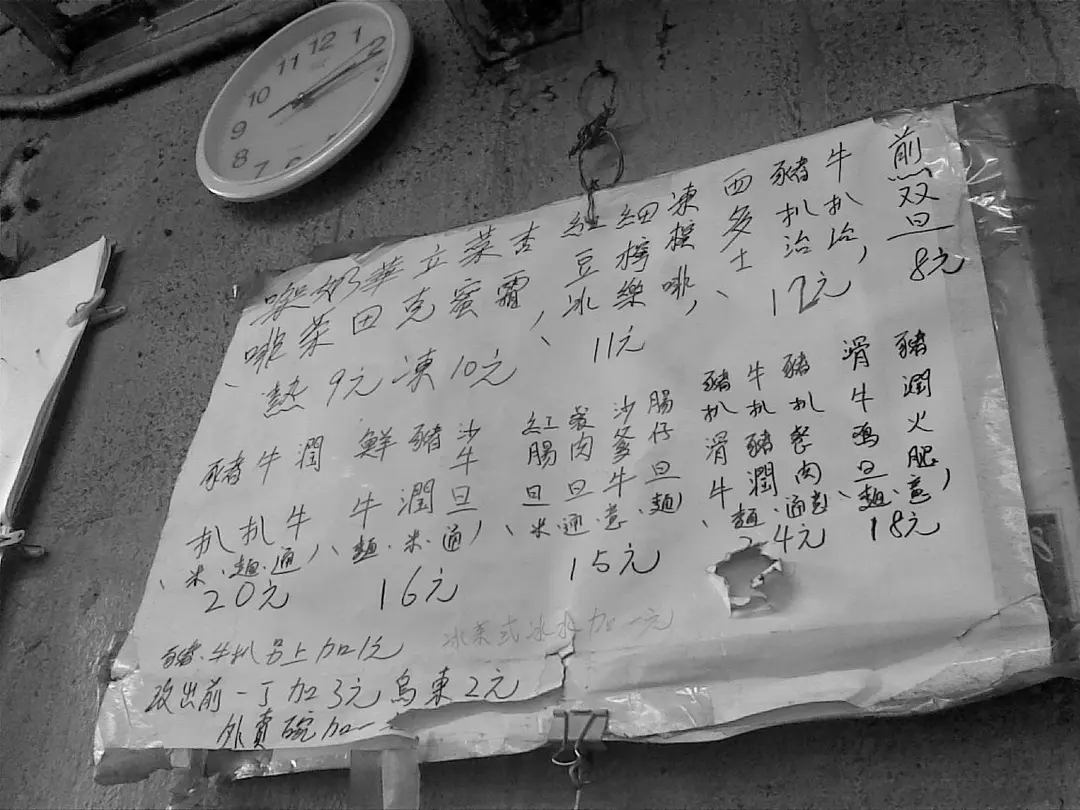 煎双旦
8元
牛扒治
豬扒治
西多士
凍檬啡
細檸樂
紅豆冰
11元
杏霜
菜蜜
立克
華田
奶茶
啡
熱9元 凍10元
豬潤火腿
滑牛鸡旦
麵、意
18元
豬扒餐肉
牛扒豬潤
豬扒滑牛
麵、通
4元
腸仔旦
沙爹牛
餐肉旦
紅腸旦
米、通、意、麵
15元
沙牛旦
豬潤
鮮牛
麵、米、通
16元
潤牛
牛扒
豬扒
米、麵、通
20元
豬、牛扒另上加1元
冰菜式冰水加一元
改出前一丁加3元烏東2元
外賣碗加一
12
1
2
11
10
9
8
7
6
17